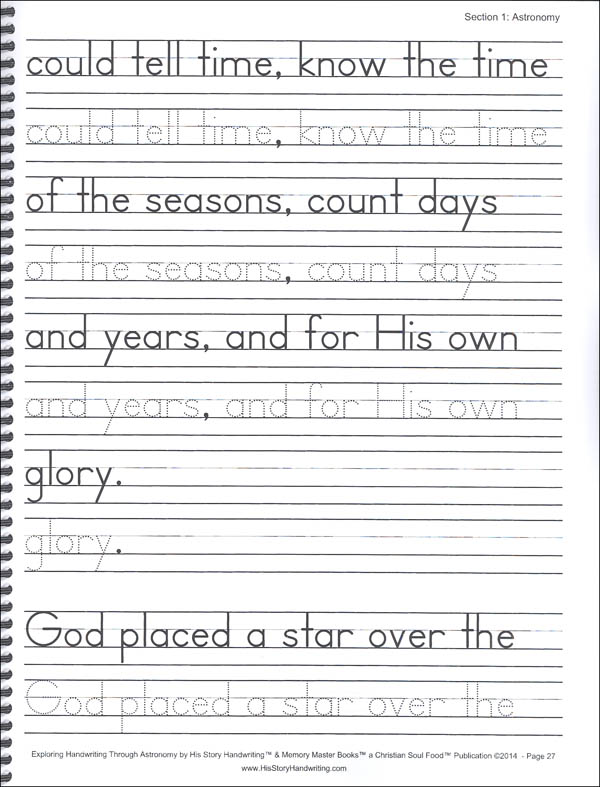 Section 1: Astronomy
could tell time, know the time
could tell time, know the time
of the seasons, count days
of the seasons, count days
and years, and for His own
and years, and for His own
glory.
glory.
God placed a star over the
God placed a star over the
Exploring Handwriting Through Astronomy by His Story Handwriting™ & Memory Master Books™ a Christian Soul Food™ Publication ©2014 - Page 27
www.HisStoryHandwriting.com